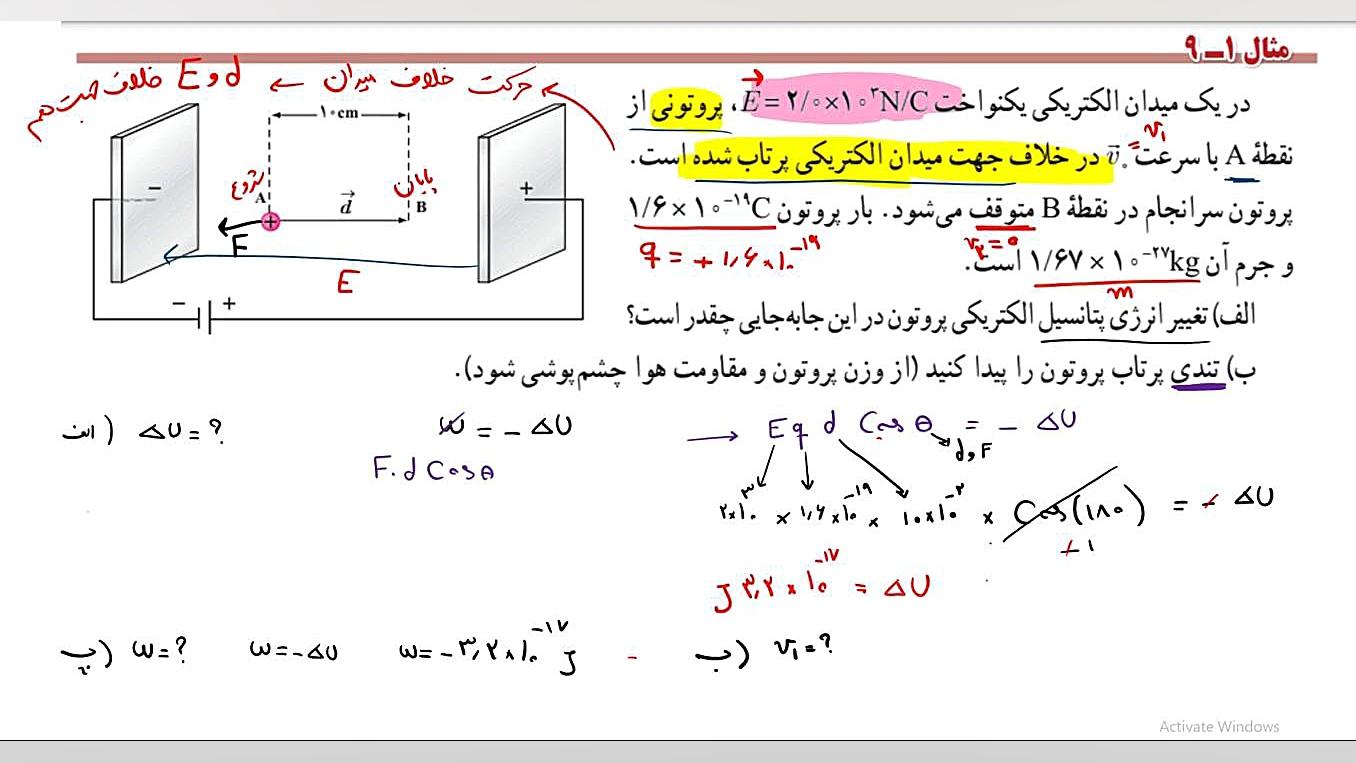 مثال ۱-۹
در یک میدان الکتریکی یکنواخت E = ۲/۰×۱۰^۳ N/C، پروتونی از
نقطهٔ A با سرعت v₀ در خلاف جهت میدان الکتریکی پرتاب شده است.
پروتون سرانجام در نقطهٔ B متوقف می‌شود. بار پروتون ۱/۶×۱۰^−۱۹ C
و جرم آن ۱/۶۷×۱۰^−۲۷ kg است.
الف) تغییر انرژی پتانسیل الکتریکی پروتون در این جابه‌جایی چقدر است؟
ب) تندی پرتاب پروتون را پیدا کنید (از وزن پروتون و مقاومت هوا چشم‌پوشی شود).
= v₁
v₂ = ۰
q = + ۱,۶ × ۱۰^−۱۹
m
حرکت خلاف میدان ← d و E خلاف جهت هم
۱۰cm
شروع
پایان
A
d
B
−
+
+
F
E
− +
الف) ΔU = ?
W = − ΔU
F.d Cosθ
→ E q d Cosθ = − ΔU
d و F
۲×۱۰^۳ × ۱,۶×۱۰^−۱۹ × ۱۰×۱۰^−۲ × Cos(۱۸۰) = − ΔU
−۱
J ۳,۲ × ۱۰^−۱۷ = ΔU
ب) v₁ = ?
پ) W = ? W = − ΔU W = − ۳,۲ × ۱۰^−۱۷ J
Activate Windows